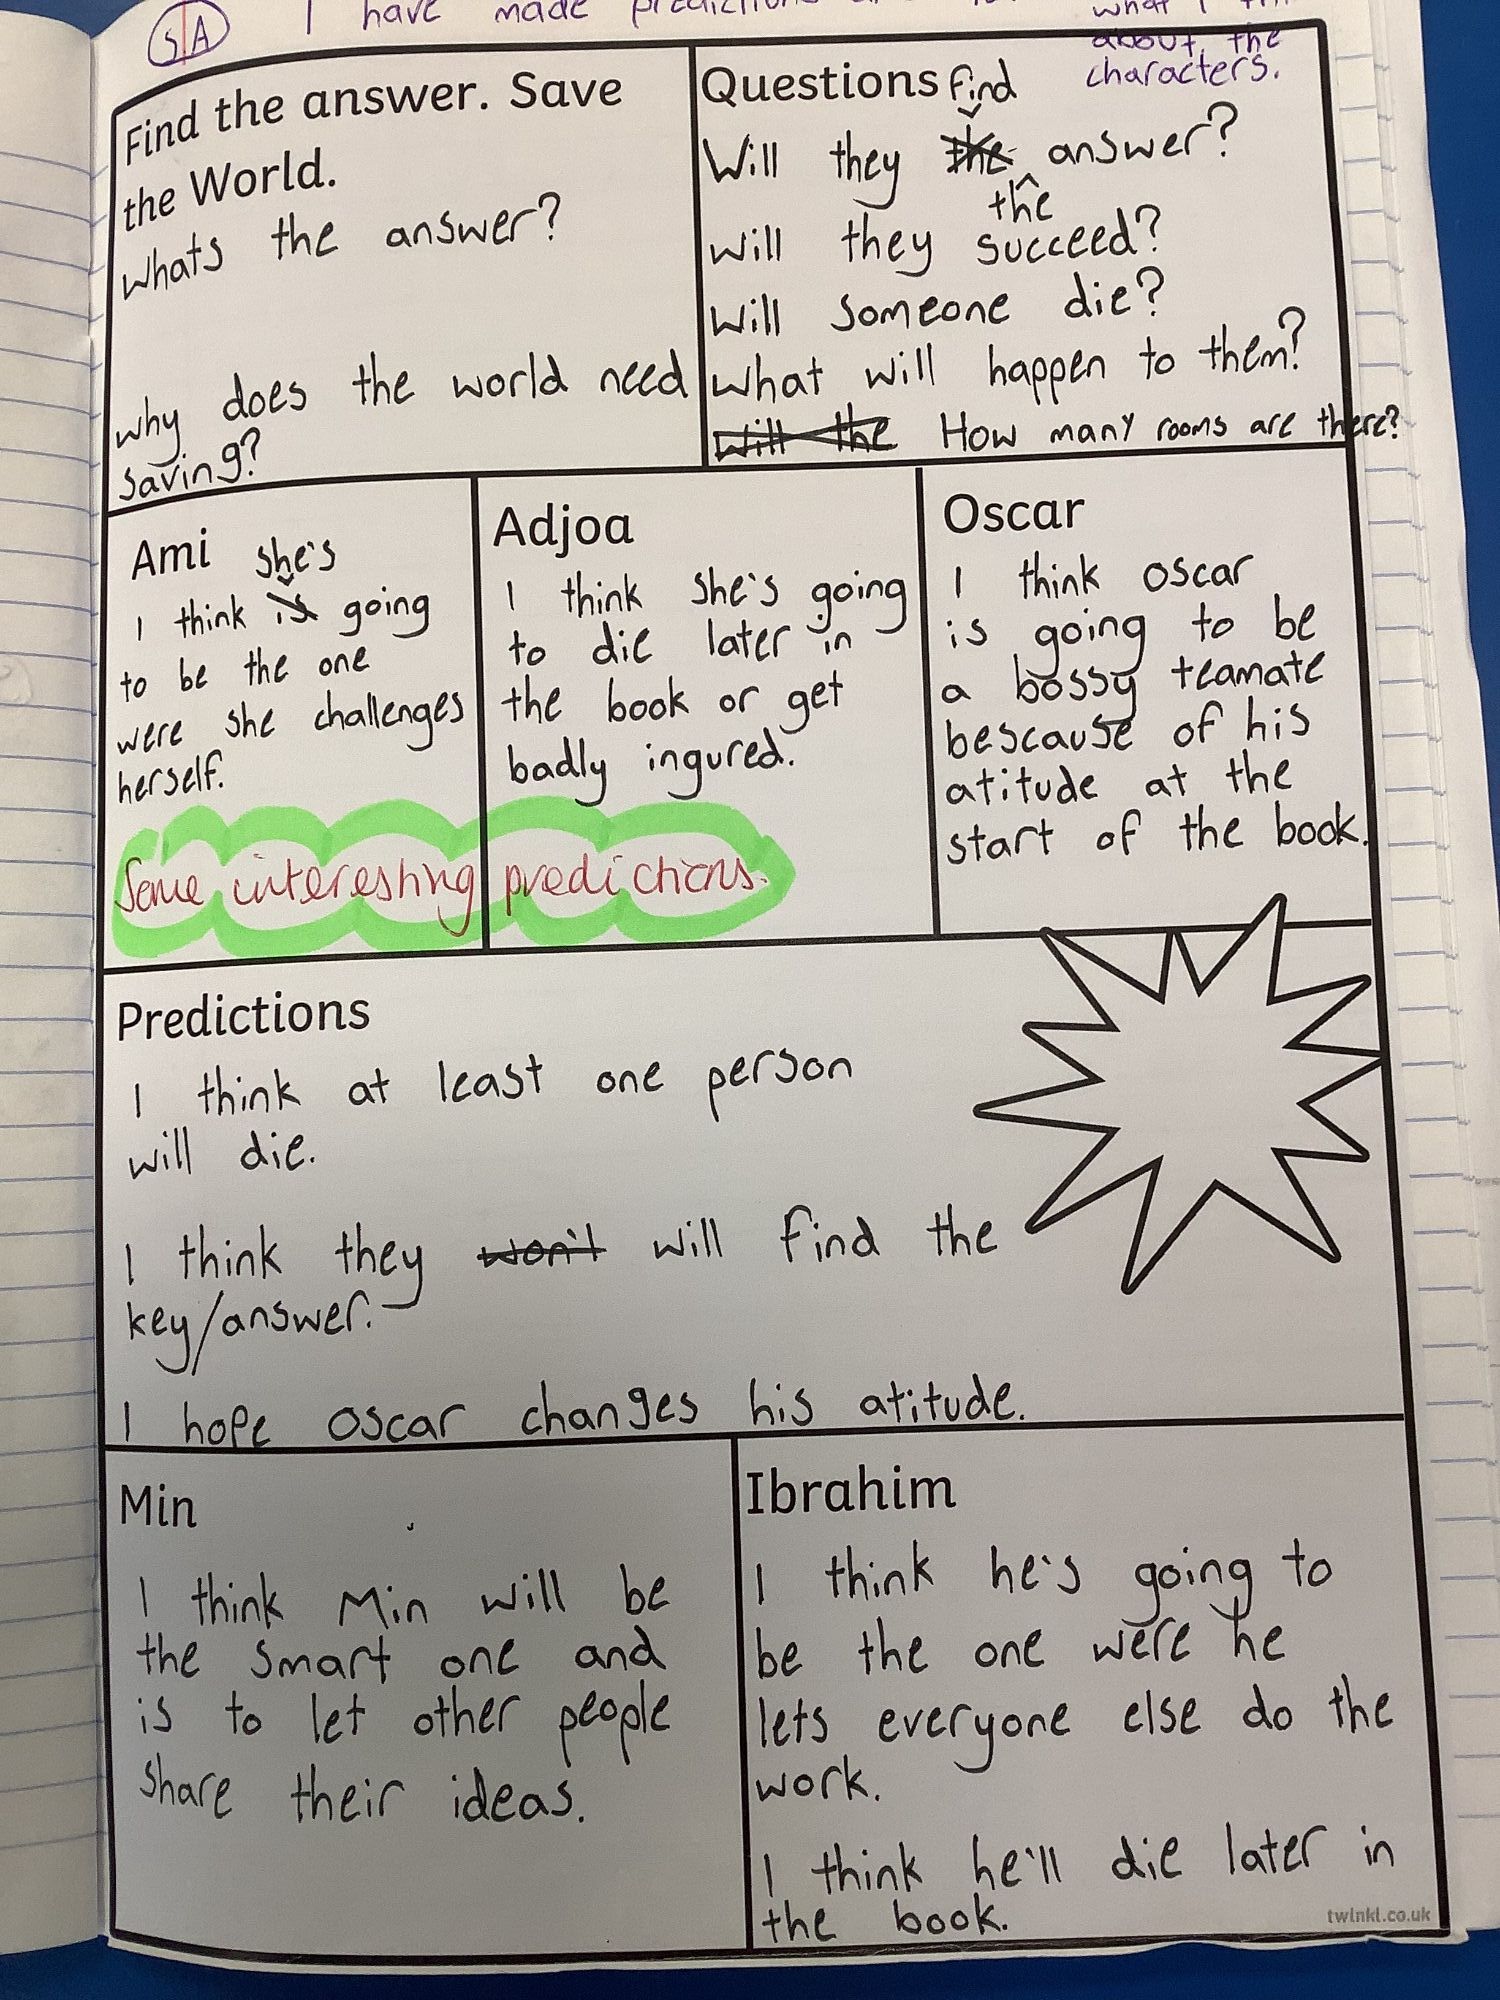 S|A I have made predictions
what I
about the
characters.
Find the answer. Save
the World.
whats the answer?
why does the world need
saving?
Questions find
Will they the answer?
the
will they succeed?
Will someone die?
What will happen to them?
Will the How many rooms are there?
Ami she's
I think is going
to be the one
were she challenges
herself.
Adjoa
I think she's going
to die later in
the book or get
badly ingured.
Oscar
I think oscar
is going to be
a bossy teamate
bescause of his
atitude at the
start of the book.
Some interesting predictions.
Predictions
I think at least one person
will die.
I think they won't will find the
key/answer.
I hope oscar changes his atitude.
Min
I think Min will be
the smart one and
is to let other people
share their ideas.
Ibrahim
I think he's going to
be the one were he
lets everyone else do the
work.
I think he'll die later in
the book.
twinkl.co.uk